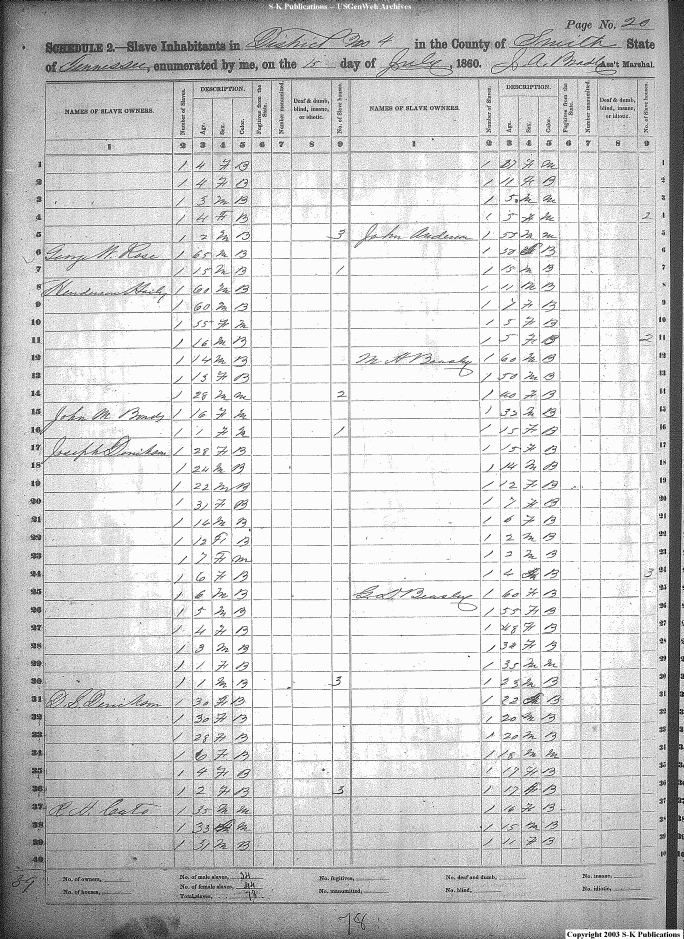 S-K Publications – USGenWeb Archives
Page No. 20
SCHEDULE 2.—Slave Inhabitants in District No 4 in the County of Smith State
of Tennessee, enumerated by me, on the 15 day of July, 1860. J. A. Ass't Marshal.
NAMES OF SLAVE OWNERS. Number of Slaves. DESCRIPTION. Age. Sex. Color. Fugitives from the State. Number manumitted. Deaf & dumb, blind, insane, or idiotic. No. of Slave houses. NAMES OF SLAVE OWNERS. Number of Slaves. DESCRIPTION. Age. Sex. Color. Fugitives from the State. Number manumitted. Deaf & dumb, blind, insane, or idiotic. No. of Slave houses.
1 2 3 4 5 6 7 8 9 1 2 3 4 5 6 7 8 9
1 1 4 F B 1 27 F M 1
2 1 4 F B 1 11 F B 2
3 1 3 M B 1 5 M M 3
4 1 4 F B 1 5 F M 2 4
5 1 2 M B 3 John Anderson 1 55 M M 5
6 George W. Rose 1 65 M B 1 30 B 6
7 1 15 M B 1 1 15 M B 7
8 Henderson 1 60 M B 1 11 M B 8
9 1 60 M B 1 7 F B 9
10 1 55 F M 1 5 F B 10
11 1 16 M B 1 5 F B 2 11
12 1 14 M B M H Beasley 1 60 M B 12
13 1 13 F B 1 50 M B 13
14 1 28 M M 2 1 40 F B 14
15 John M 1 16 F M 1 32 M B 15
16 1 1 F M 1 1 15 F B 16
17 Joseph 1 28 F B 1 15 F B 17
18 1 24 M B 1 14 M B 18
19 1 22 M B 1 12 F B 19
20 1 31 F B 1 7 F B 20
21 1 14 M B 1 6 F B 21
22 1 12 F B 1 2 M B 22
23 1 7 F M 1 2 M B 23
24 1 6 F B 1 4 B 3 24
25 1 6 M B Beasley 1 60 F B 25
26 1 5 M B 1 55 F B 26
27 1 4 F B 1 48 F B 27
28 1 3 M B 1 34 F B 28
29 1 1 F B 1 35 M M 29
30 1 1 M B 3 1 23 M B 30
31 1 30 F B 1 22 B 31
32 1 30 F B 1 20 M B 32
33 1 28 F B 1 20 M B 33
34 1 6 F B 1 18 M M 34
35 1 4 F B 1 17 F B 35
36 1 2 F B 3 1 17 F B 36
37 1 35 M M 1 16 F B 37
38 1 33 M 1 15 M B 38
39 1 31 M B 1 11 F B 39
40 40
39
No. of owners, No. of male slaves, 34 No. fugitives, No. deaf and dumb, No. insane,
No. of houses, No. of female slaves, 44 No. manumitted, No. blind, No. idiotic,
Total slaves, 78
78
Copyright 2003 S-K Publications